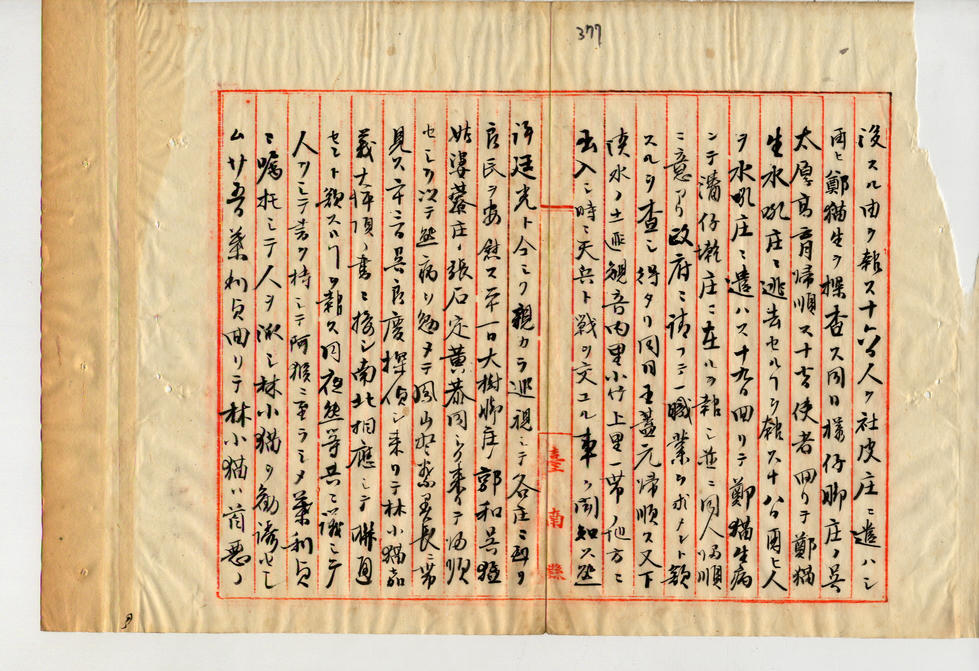 377
没スル由ヲ報ス十六日人ヲ社皮庄ニ遣ハシ
再ヒ鄭猫生ヲ探査ス同日樣仔脚庄ノ呉
太厚高育帰順ス十七日使者回リテ鄭猫
生水吼庄ニ逃去セル了ヲ報ス十八日因ヒ人
ヲ水吼庄ニ遣ハス十九日回リテ鄭猫生病
ンテ潘仔墘庄ニ在ルヲ報シ並ニ同人帰順
ニ意アリ政府ニ請フニ一職業ヲ求メント欲
スルヲ査シ得タリ同日王蓋元帰順ス又下
淡水ノ土匪観音内里小竹上里一帯ノ地方ニ
出入シ時ニ天兵ト戦ヲ交ユル事ヲ聞知ス
許廷光ト今ミヲ親カラ巡視シテ各庄ニ到リ
良民ヲ安慰ス二十一日大樹脚庄ノ郭和呉猛
姑婆藔庄ノ張石定黄恭同シク来リテ帰順
セシヲ以テ病ヲ勉メテ鳳山弁務署長ニ帯
見ス二十三日呉良慶探偵シ来リテ林小猫
義大坪頂ノ書ニ接シ南北相應シテ聯通
セント欲スル了ヲ報ス同夜等共ニ議シテ
人ヲシテ書ヲ持シテ阿猴ニ至ラシメ葉利貞
ニ嘱托シテ人ヲ派シ林小猫ヲ勧誘セシ
ム廿五日葉利貞回リテ林小猫ハ首悪ノ
臺南縣